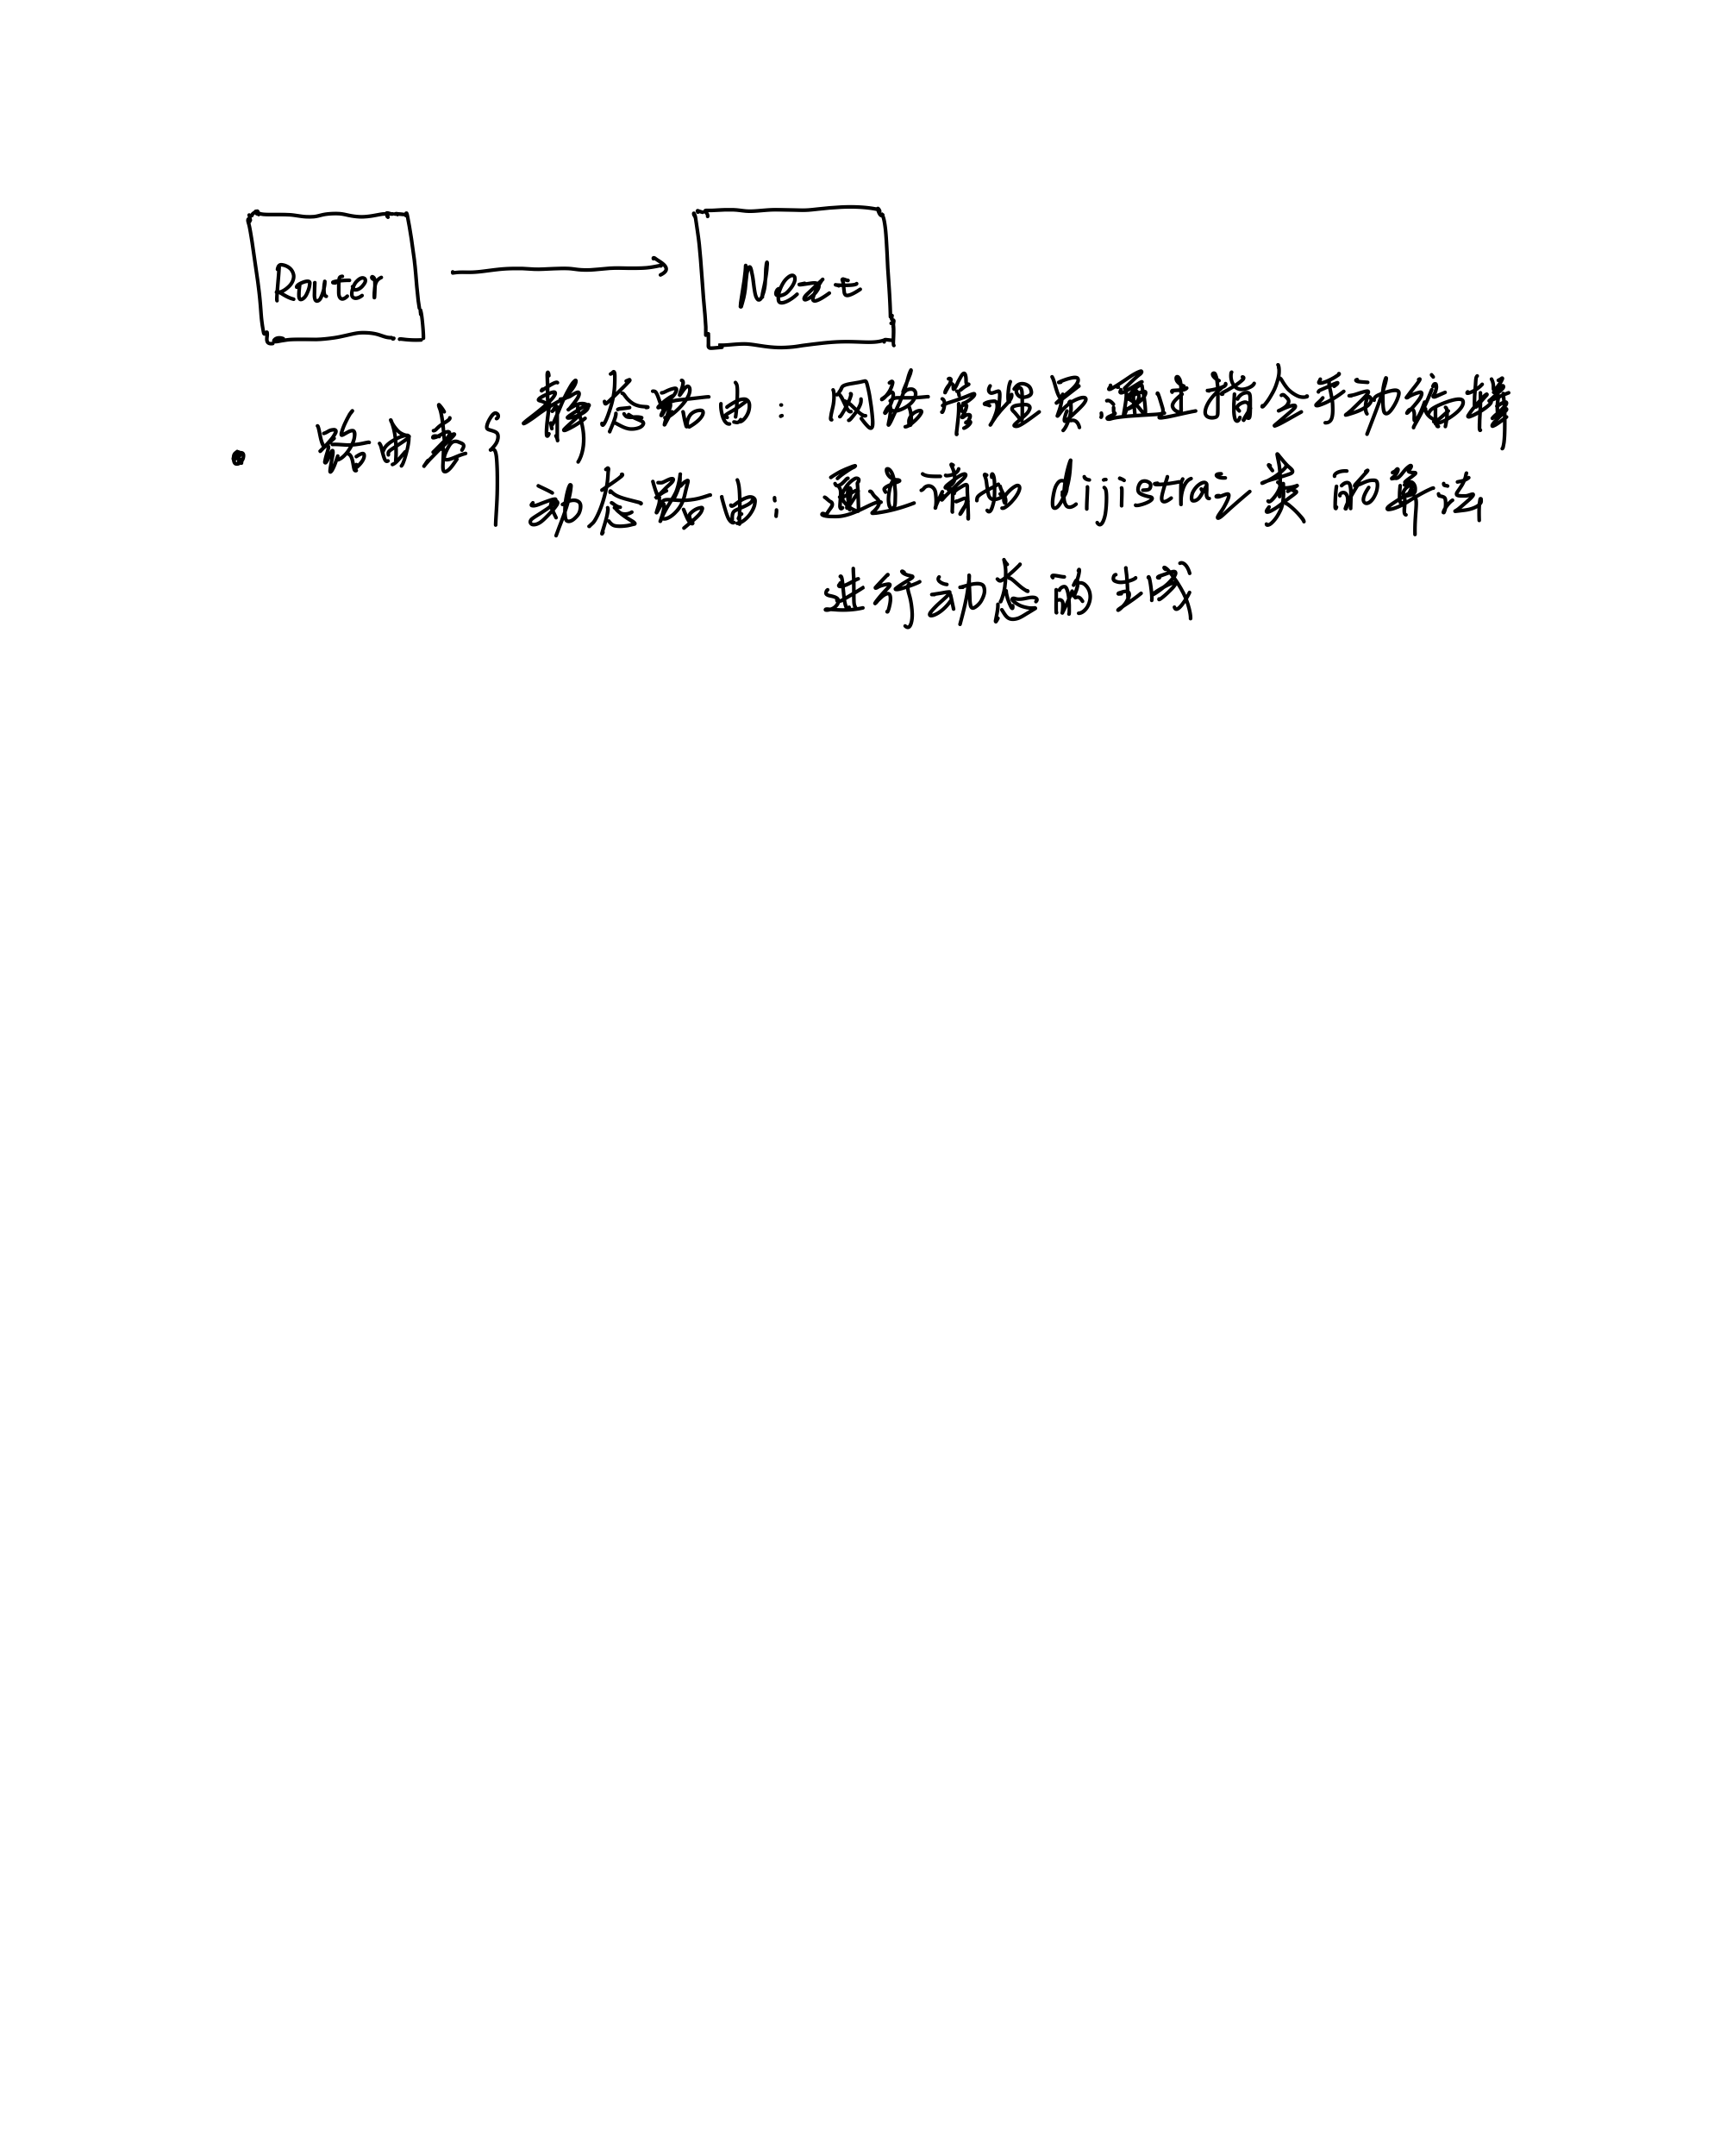 Router
Next
• 路由表
静态路由: 网络管理员通过指令手动编辑
动态路由: 通过诸如 dijistra之类 的算法
进行动态的生成